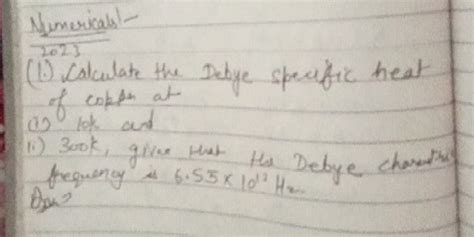 Numericals:-
2023
(1.) Calculate the Debye specific heat
of copper at
(i) 10k and
ii) 300k, given that the Debye characteristic
frequency is 6.55 x 10¹² Hz.